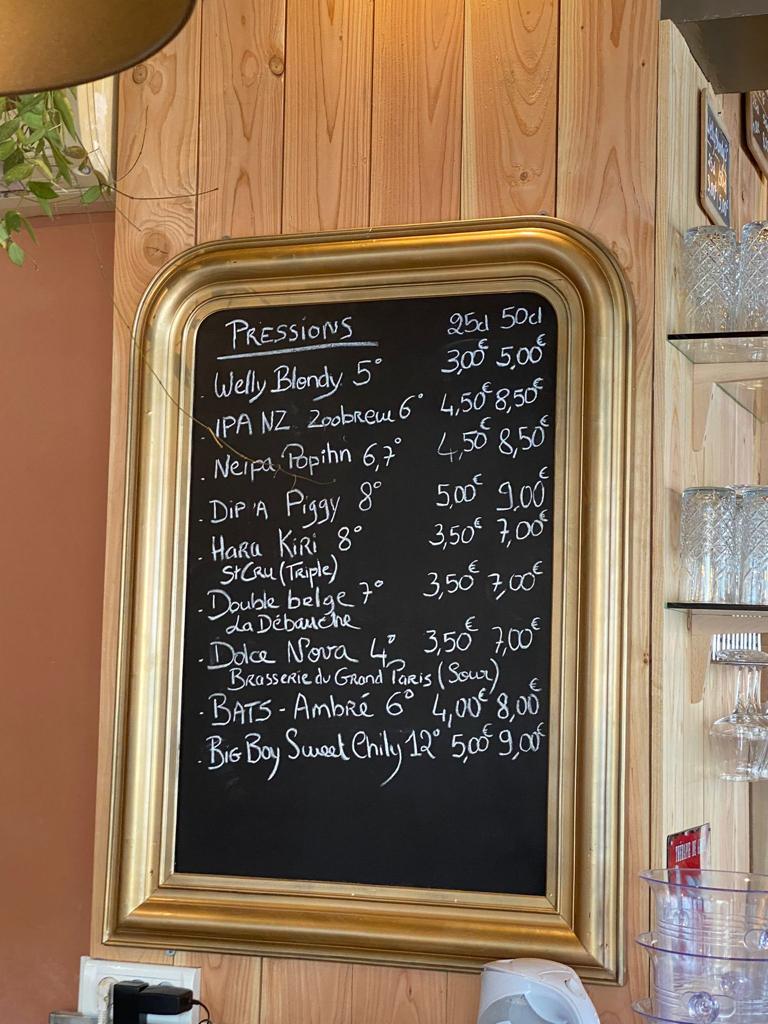 PRESSIONS 25cl 50cl
. Welly Blondy 5° 3,00€ 5,00€
. IPA NZ Zoobrew 6° 4,50€ 8,50€
. Neipa Popihn 6,7° 4,50€ 8,50€
. DIP'A Piggy 8° 5,00€ 9,00€
. HARA KIRI 8° 3,50€ 7,00€
St Cru (Triple)
. Double belge 7° 3,50€ 7,00€
La Débauche
. Dolce Nova 4° 3,50€ 7,00€
Brasserie du Grand Paris (Sour)
. BATS - Ambré 6° 4,00€ 8,00€
. Big Boy Sweet Chily 12° 5,00€ 9,00€